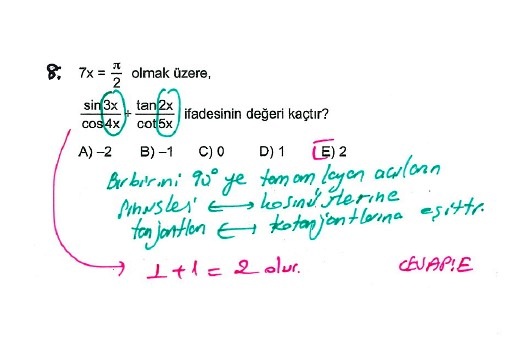 8. 7x = π/2 olmak üzere,
sin3x/cos4x + tan2x/cot5x ifadesinin değeri kaçtır?
A) –2 B) –1 C) 0 D) 1 E) 2
Birbirini 90° ye tamamlayan açıların
sinüsleri ⟷ kosinüslerine
tanjantları ⟷ kotanjantlarına eşittir.
1 + 1 = 2 olur. CEVAP:E